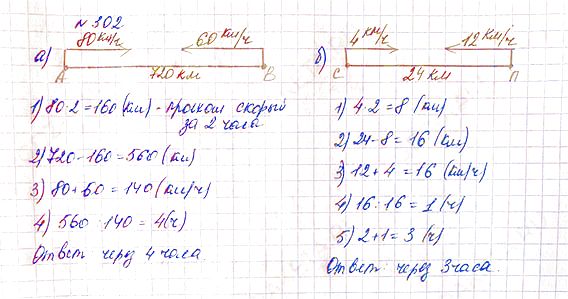 № 302
а) 80 км/ч 60 км/ч
А 720 км В
1) 80·2=160 (км) - прошёл скорый
за 2 часа
2) 720-160=560 (км)
3) 80+60=140 (км/ч)
4) 560:140=4 (ч)
Ответ через 4 часа
б) 4 км/ч 12 км/ч
С 24 км П
1) 4·2=8 (км)
2) 24-8=16 (км)
3) 12+4=16 (км/ч)
4) 16:16=1 (ч)
5) 2+1=3 (ч)
Ответ: через 3 часа.